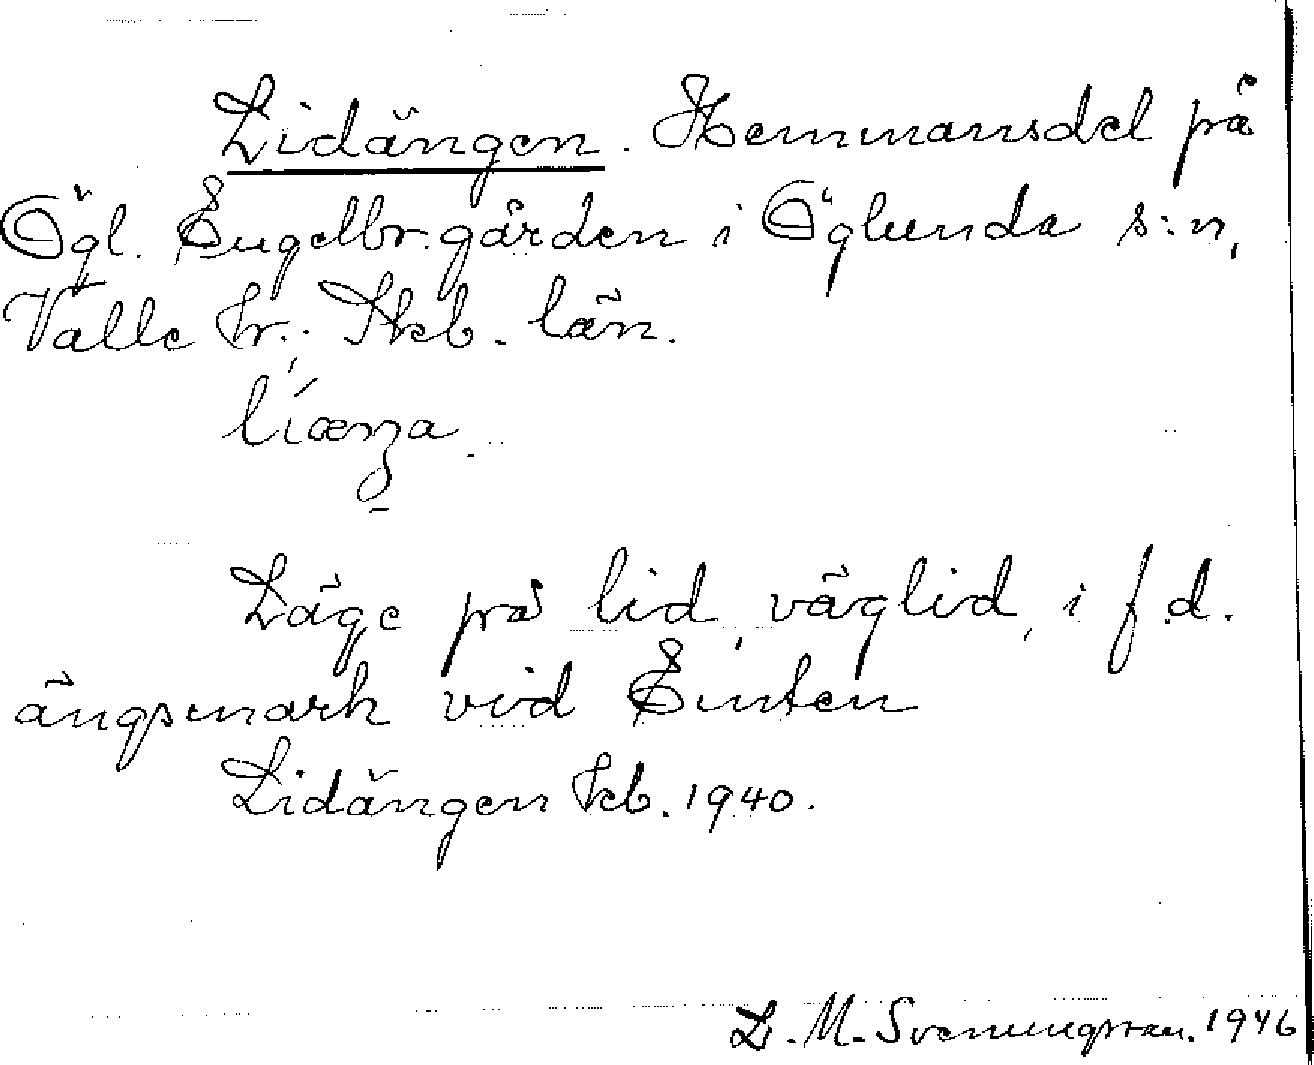 Lidängen. Hemmansdel på
Ögl. Engelbr. gården i Öglunda s:n,
Valle hr.; Skb. län.
Läge på lid, väglid, i f.d.
ängsmark vid Emten
Lidängen kb. 1940.
L. M. Svenungsson. 1946